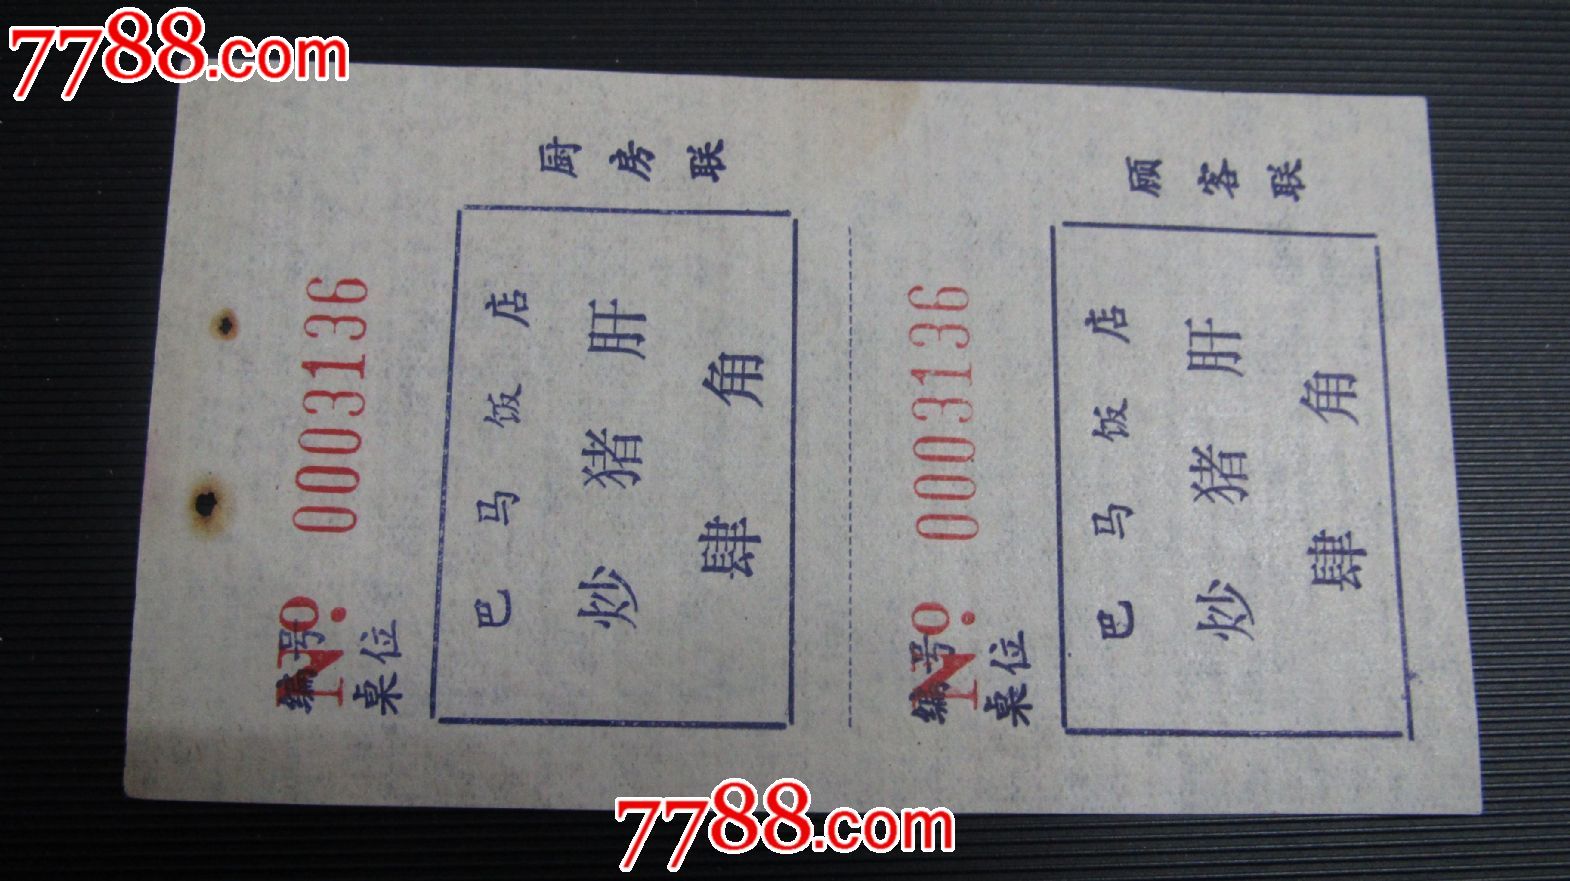 7788.com
编号 No. 0003136
桌位
巴马饭店
炒猪肝
肆角
厨房联
编号 No. 0003136
桌位
巴马饭店
炒猪肝
肆角
顾客联
7788.com